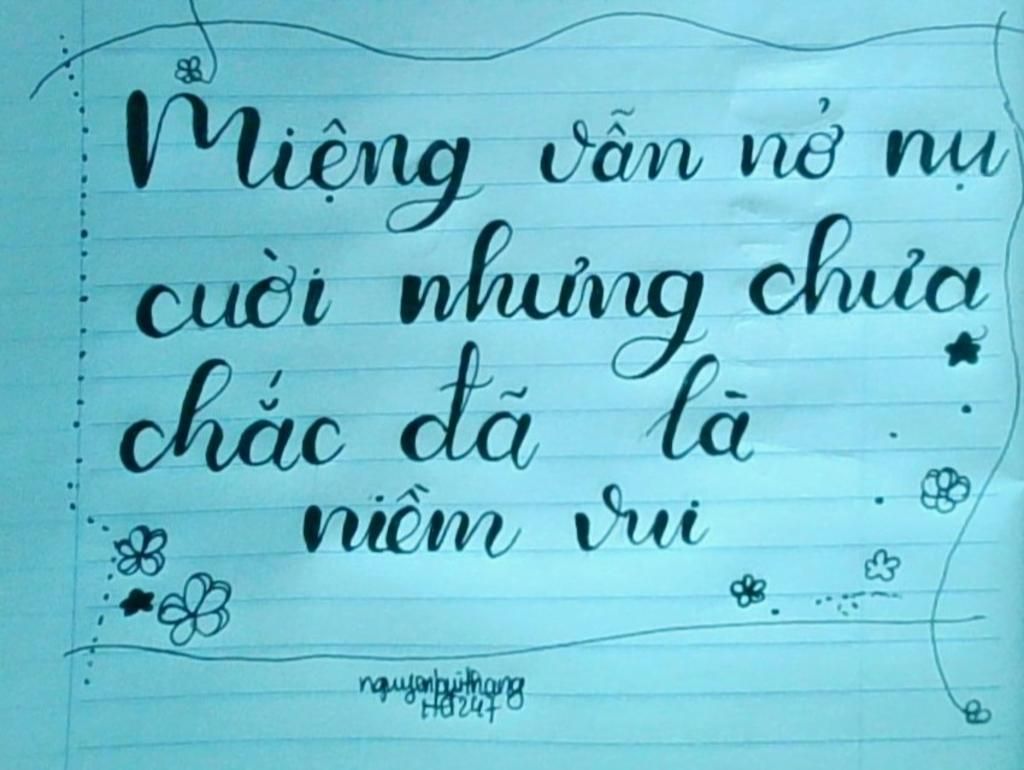 Miệng vẫn nở nụ
cười nhưng chưa
chắc đã là
niềm vui